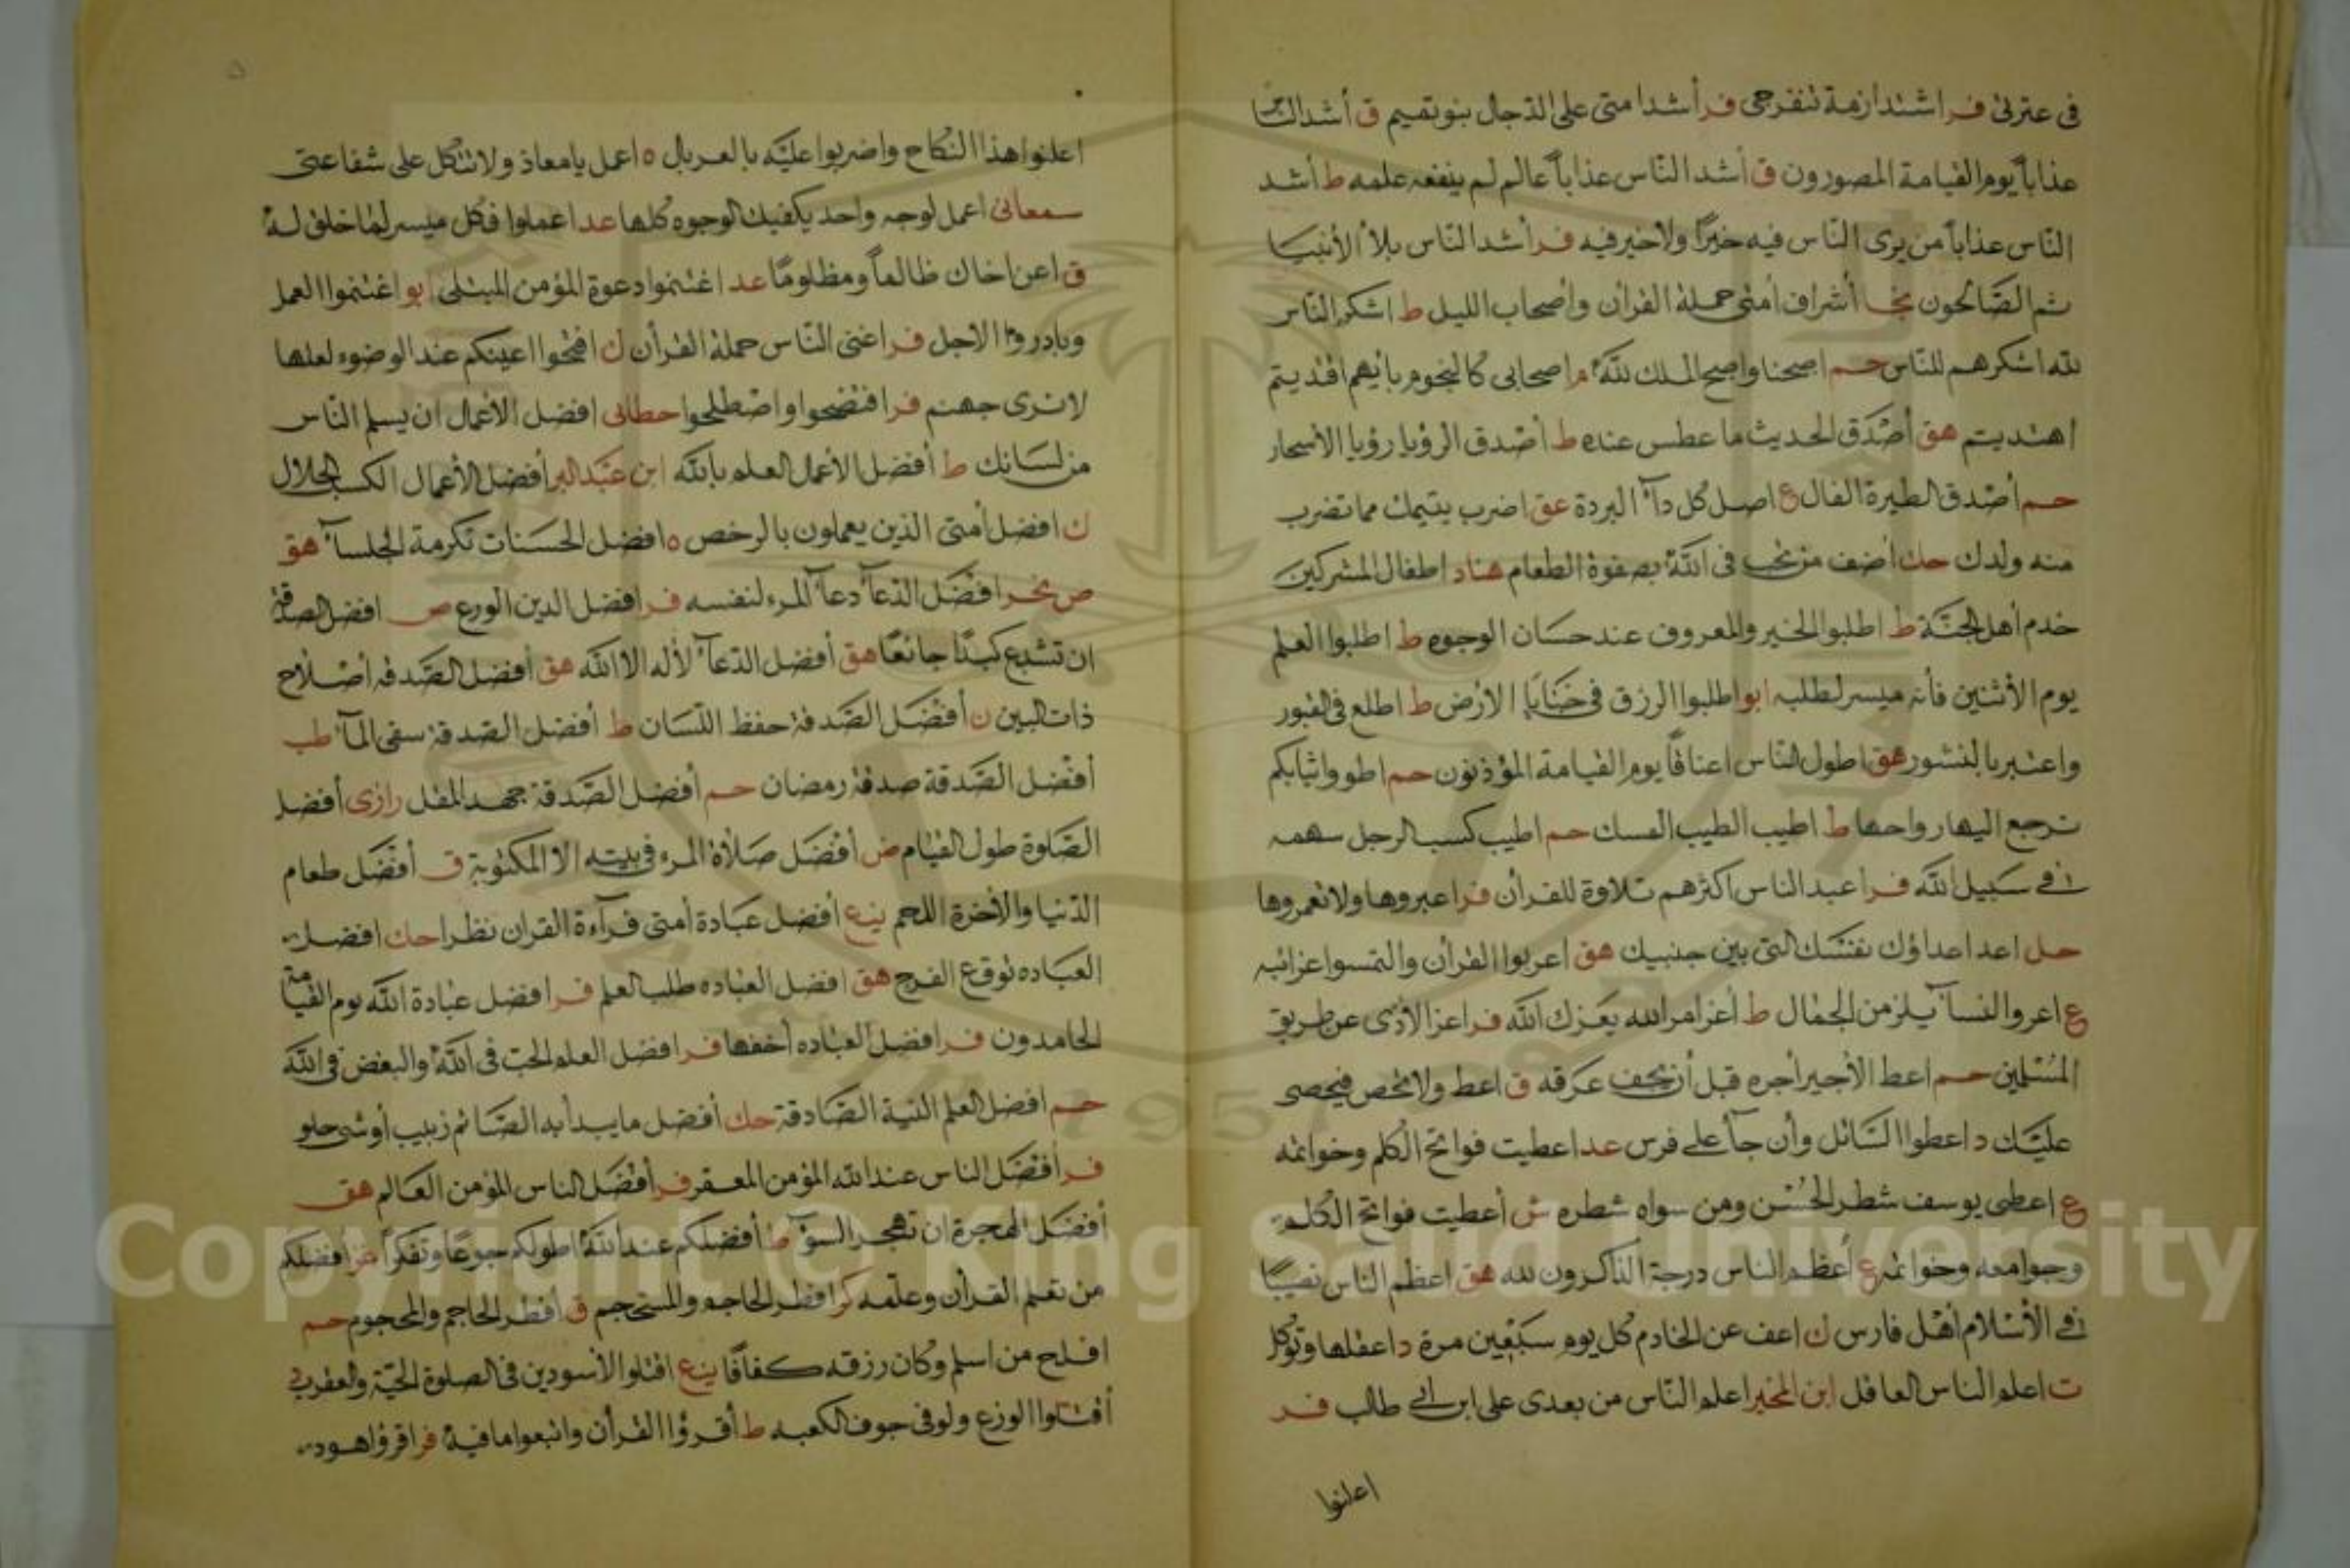 في عترتي فر اشتدازمة تنفرجى فر أشد امتى على الدجال بنو تميم ق أشد النّاس
عذاباً يوم القيامة المصورون ق أشد النّاس عذاباً عالم لم ينفعه علمه ط أشد
النّاس عذاباً من يرى النّاس فيه خيرًا ولا خير فيه فر أشد النّاس بلاءً الأنبيا
ثم الصّالحون نجا أشراف أمتى حملة القرآن وأصحاب الليل ط اشكر النّاس
لله اشكرهم للنّاس حم اصبحنا واصبح الملك للّه م اصحابى كالنجوم بأيهم اقتديتم
اهتديتم هق أصْدَق الحديث ما عطس عنده ط أصْدق الرؤيا رؤيا الأسحار
حم أصْدق الطيرة الفال ع اصل كل دآء البردة عق اضرب يتيمك مما تضرب
منه ولدك حك أضف من تحب فى اللّه بصفوة الطعام هناد اطفال المشركين
خدم أهل الجنّة ط اطلبوا الخير والمعروف عند حسَان الوجوه ط اطلبوا العلم
يوم الأثنين فأنه ميسر لطلبه ابو اطلبوا الرزق فى خَبَايَا الارْض ط اطلع فى القبور
واعتبر بالنشور هق اطول النّاس اعناقًا يوم القيامة المؤذنون حم اطووا ثيابكم
ترجع اليها رواحها ط اطيب الطيب المسك حم اطيب كسب الرجل سهمه
فى سَبيل اللّه فر اعبد الناس اكثرهم تلاوة للقرأن فر اعبروها ولا تعمروها
حل اعد اعداؤك نفسَك التى بين جنبيك هق اعربوا القرأن والتمسوا غرائبه
ع اعروا النسآء يلزمن الحجال ط أعز امر الله يعزك اللّه فر اعز الأذى عن طريق
المُسْلمين حم اعط الأجير أجره قبل أن يجف عرقه ق اعط ولا تحص فيحصى
عليَك د اعطوا السَائل وأن جآء على فرس عد اعطيت فواتح الكلم وخواتمه
ع اعطى يوسف شطر الحُسْن ومن سواه شطره ش أعطيت فواتح الكلم
وجوامعه وخواتمه ع أعظم الناس درجة الذاكرون لله هق اعظم الناس نصيبًا
فى الأسْلام أهْل فارس ك اعف عن الخادم كل يوم سَبْعِين مرة د اعقلها وتوكل
ت اعلم الناس العاقل ابن المخبر اعلم النّاس من بعدى على ابن ابى طالب فر
اعلنوا
اعلنوا هذا النكاح واضربوا عليَه بالغربال ه اعمل يا معاذ ولا تتكل على شفاعتى
سمعانى اعمل لوجه واحد يكفيك الوجوه كلها عد اعملوا فكل ميسر لما خلق له
ق اعن اخاك ظالماً ومظلومًا عد اغتنموا دعوة المؤمن المبتلى ابو اغتنموا العمل
وبادروا الاجل فر اغنى النّاس حملة القرأن ك افتحوا اعينكم عند الوضوء لعلها
لا ترى جهنم فر افتضحوا واصْطلحوا خطابى افضل الأعمال ان يسلم النّاس
من لسَانك ط أفضل الأعمال العلم باللّه ابن عَبْد البر أفضل الأعمال الكسب الحلال
ك افضل أمتى الذين يعملون بالرخص ه افضل الحسَنات تكرمة الجلسآء هق
ص نخر افضَل الدّعآء دعآء المرء لنفسه فر افضل الدين الورع ص افضل الصدقة
ان تشبع كبدًا جائعًا هق أفضل الدّعآء لأله الا اللّه هق أفضل الصّدقه أصْلاح
ذات البين ن أفضَل الصّدقة حفظ اللّسَان ط أفضل الصّدقة سقى المآء طب
أفضَل الصّدقة صدقة رمضان حم أفضل الصّدقة جهد المقل رازى أفضل
الصّلوة طول القيام ض أفضَل صَلاة المرء فى بيته الا المكتوبة ق أفضَل طعام
الدّنيا والأخرة اللحم ينع أفضل عبَادة أمتى قرآءة القران نظرا حك افضل
العبَاده توقع الفرج هق افضل العبَاده طلب العلم فر افضل عبادة اللّه يوم القيامة
الحامدون فر افضل العبَاده أخفها فر افضل العلم الحب فى اللّه والبغض فى اللّه
حم افضل العلم النية الصّادقة حك أفضل ما يبدأ به الصّائم زبيب أو شى حلو
فر أفضَل الناس عند الله المؤمن المعقر فر أفضَل الناس المؤمن العَالم هق
أفضَل الهجرة ان تهجر السوٓء ط أفضلكم عند اللّه اطولكم جوعًا وتفكرًا ض افضلكم
من تعلم القرأن وعلّمه كر افطر الحاجم والمستحجم ق أفطر الحاجم والمحجوم حم
افلح من اسلم وكان رزقه كفافًا ينع اقتلوا الأسودين فى الصلوة الحيّة والعقرب
أقتلوا الوزغ ولو فى جوف الكعبه ط أقرؤا القرأن واتبعوا ما فيهً فر اقرؤا هود
Copyright © King Saud University